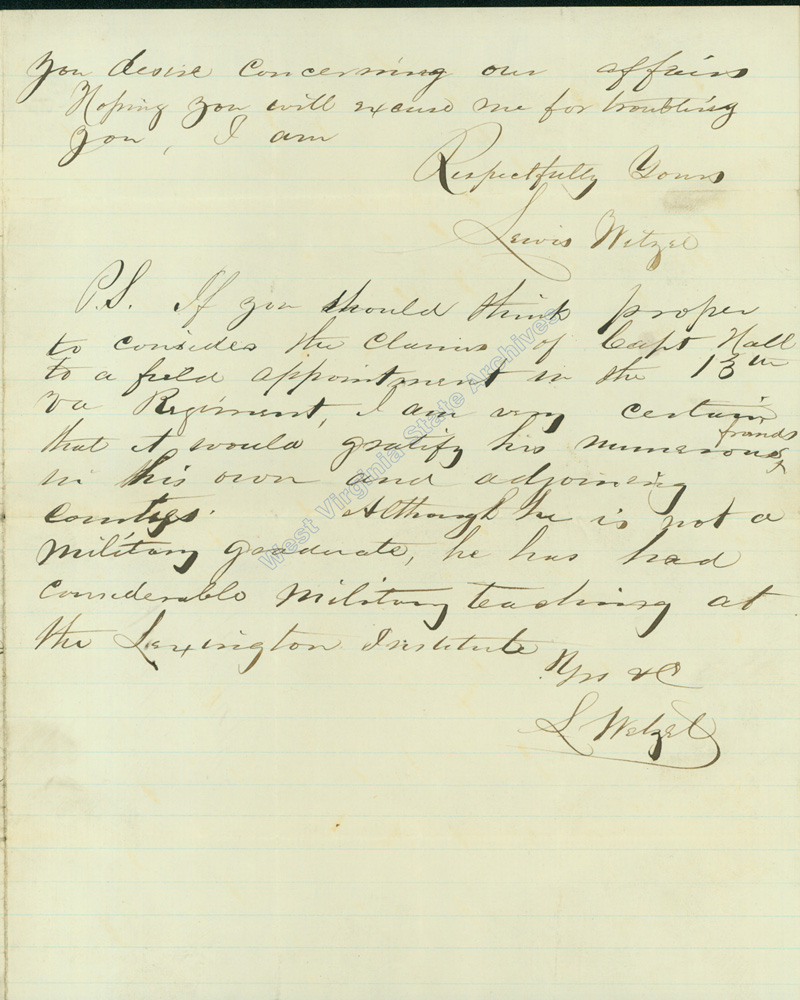 you desire concerning our affairs
Hoping you will excuse me for troubling
you, I am
Respectfully Yours
Lewis Wetzel
P.S. If you should think proper
to consider the claims of Capt Hall
to a field appointment in the 13th
va Regiment, I am very certain
that it would gratify his numerous friends
in his own and adjoining
counties. Although he is not a
military graduate, he has had
considerable military teaching at
the Lexington Institute
Yrs &C
L Wetzel
West Virginia State Archives